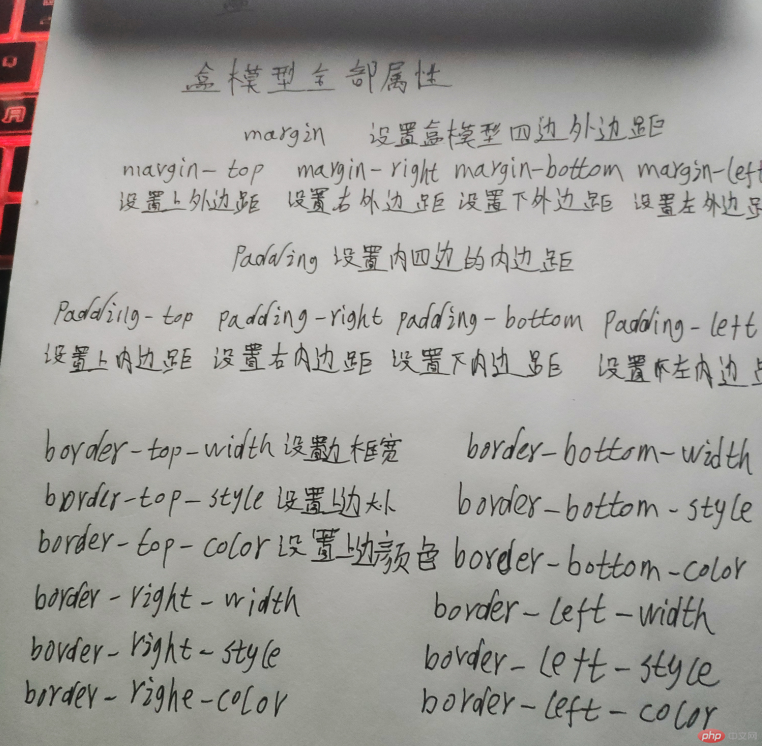 盒模型全部属性
margin 设置盒模型四边外边距
margin-top margin-right margin-bottom margin-left
设置上外边距 设置右外边距 设置下外边距 设置左外边距
Padding 设置内四边的内边距
Padding-top padding-right padding-bottom Padding-left
设置上内边距 设置右内边距 设置下内边距 设置左内边
border-top-width 设置边框宽 border-bottom-width
border-top-style 设置上边大小 border-bottom-style
border-top-color 设置上边颜色 border-bottom-color
border-right-width border-left-width
border-right-style border-left-style
border-righe-color border-left-color
php中文网